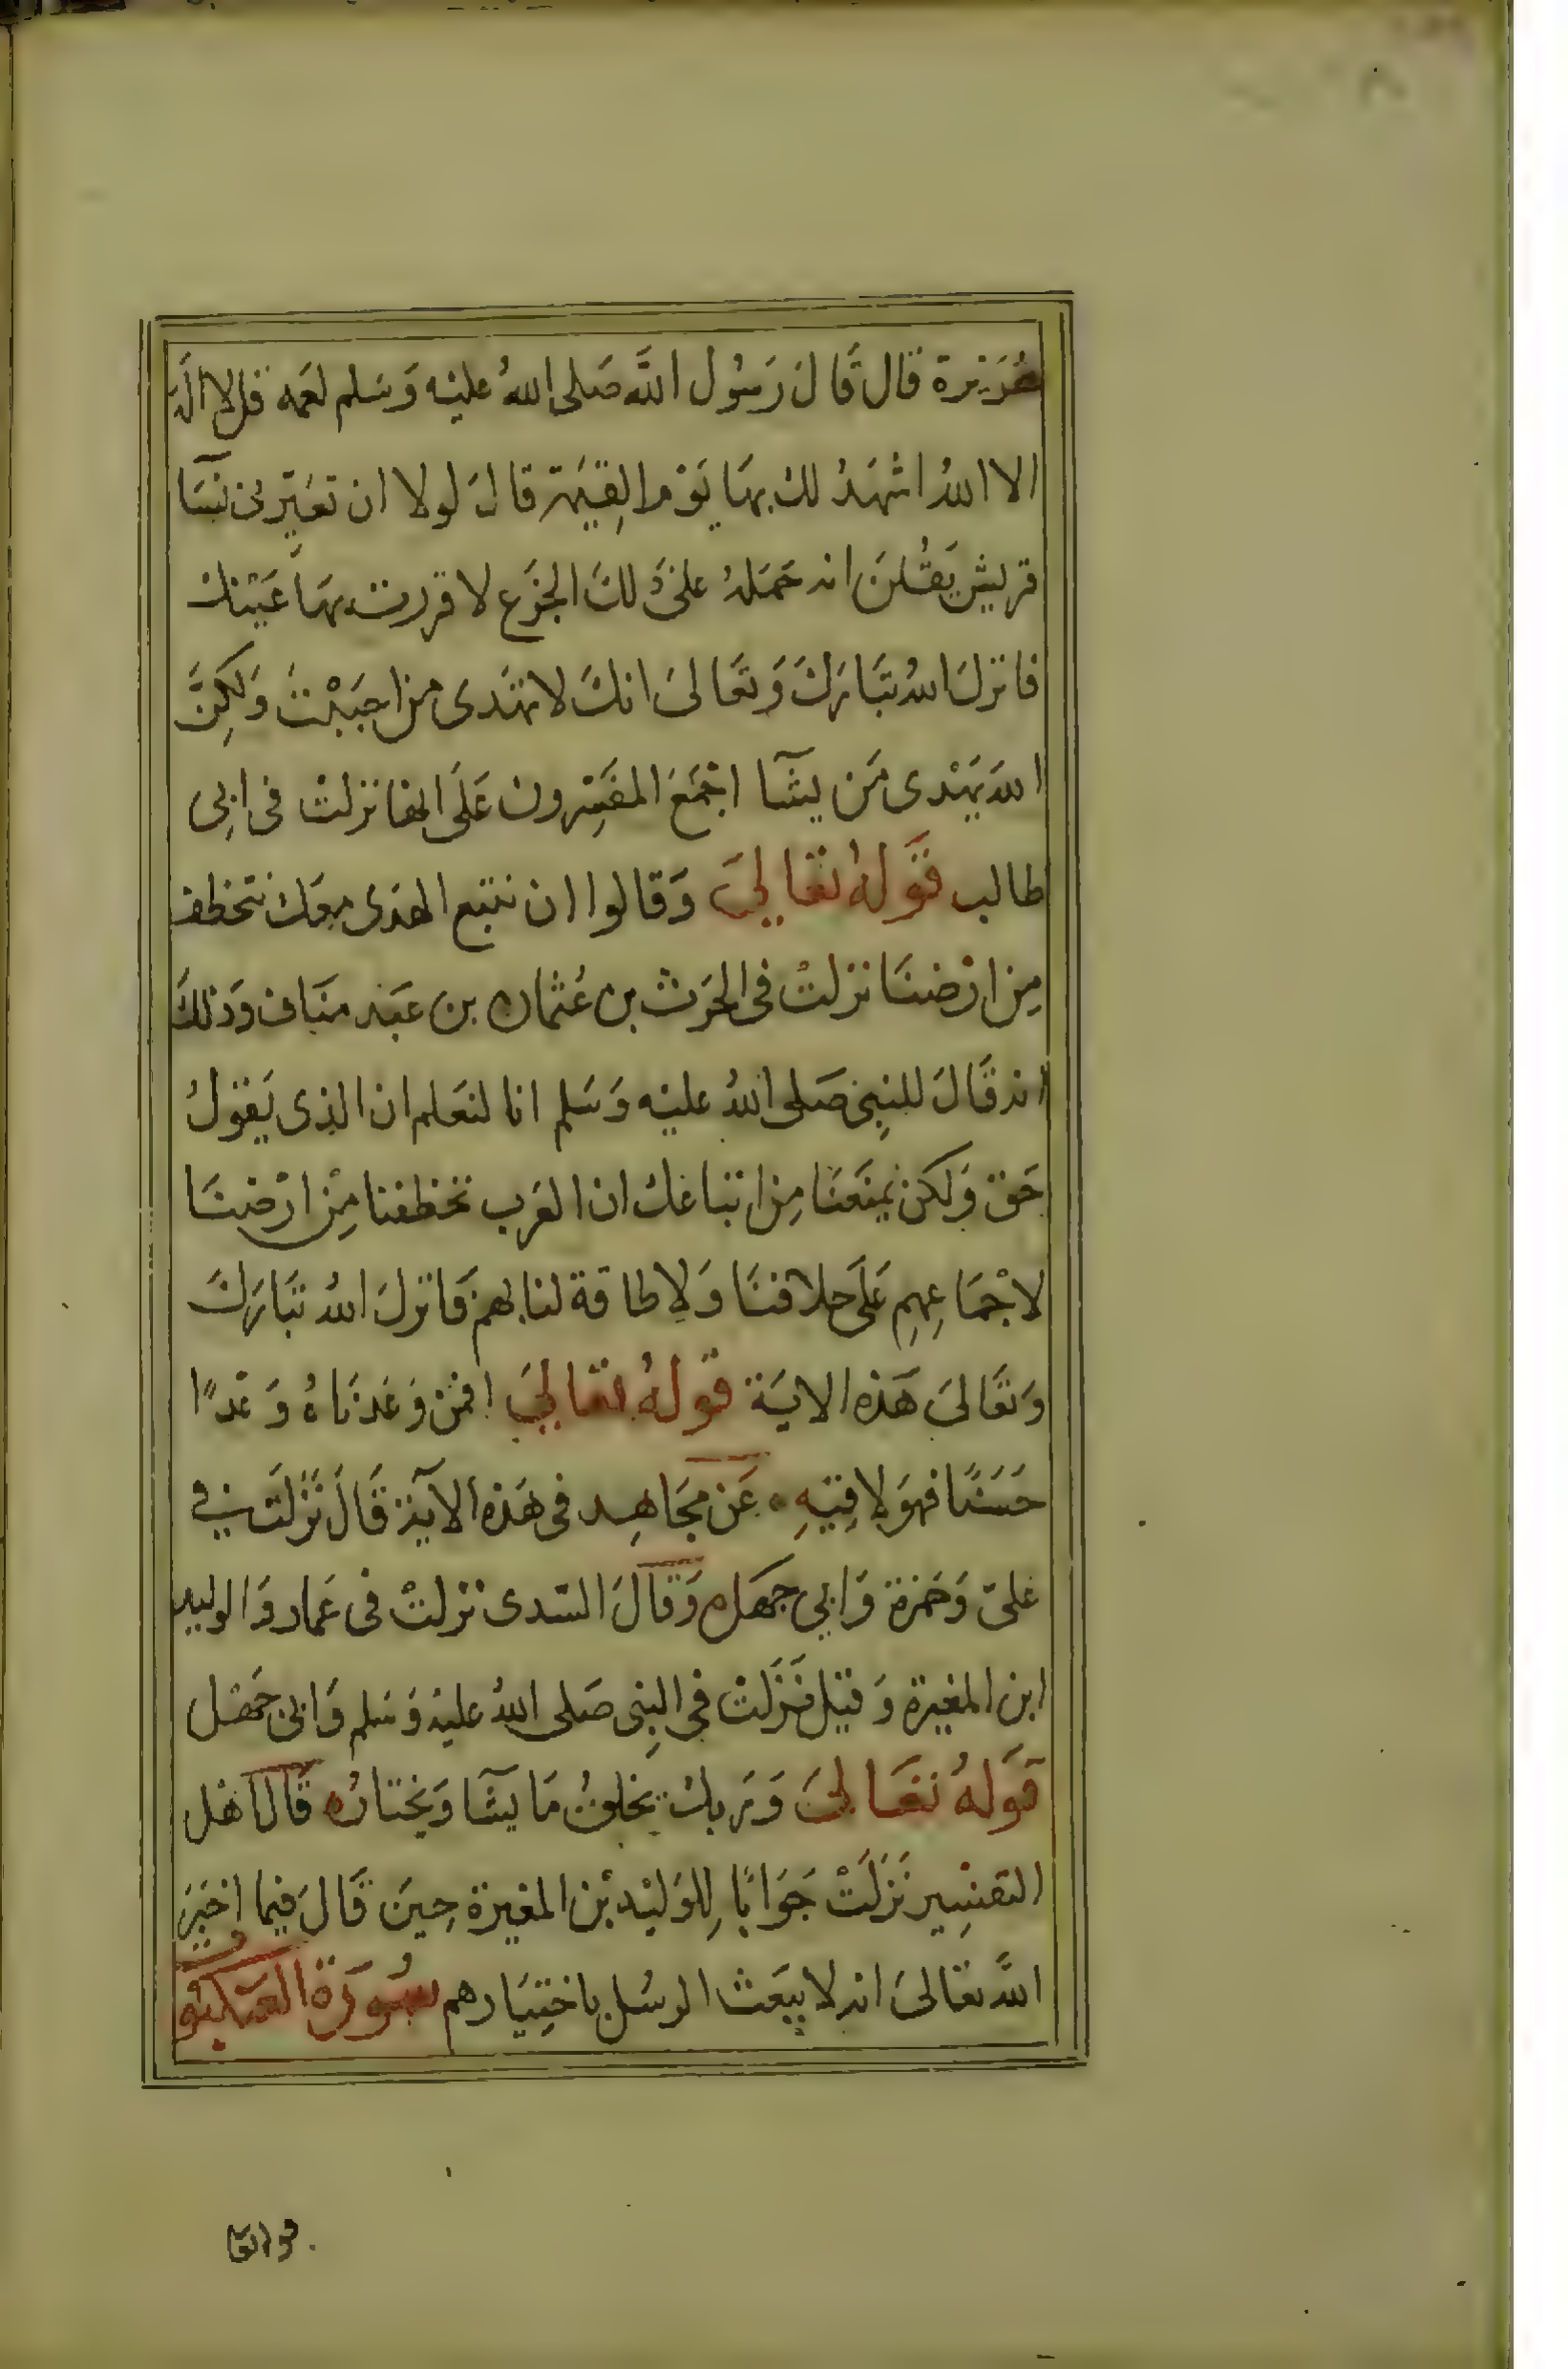 هُرَيْرة قال قَالَ رَسُول اللَّه صَلى اللهُ عليْه وَسَلم لعَمه قل لا اله
الا اللهُ اشهَدُ لك بهَا يَوْم القِيٰمة قالَ لولا ان تعَيّرنى نسَآ
قريش يَقُلنَ انه حَمَلهُ على ذَلك الجزَع لاقررت بهَا عَيْنك
فانزلَ اللهُ تبَارَكَ وَتعَالىَ انكَ لا تهَدى من احبَبْتَ وَلكِنَّ
اللهَ يهَدى مَن يشَآ اجْمَعَ المفَسِّرون عَلَى انها نزلتْ فى ابِى
طالب قَوْلهُ تعَالىَ وَقالوا ان نتبع الهدَى معَك نتخطف
مِن ارْضنَا نزلتْ فى الحَرث بن عُثمان بن عَبْد منَاف وَذٰلكَ
انه قَالَ للنبِى صَلى اللهُ عليْه وَسَلم انا لنعَلم ان الذِى يَقولُ
حَق وَلكن يمنَعنَا مِن اتباعَك ان العَرب تخطفنا مِنْ ارْضنَا
لاجْمَاعِهِم عَلَى خلافنَا وَلا طاقة لنا بهمْ فَانزلَ اللهُ تبَارَكَ
وَتعَالىَ هَذه الايَة قولهُ تعَالىَ افمن وَعَدنَاهُ وَعْدًا
حَسَنًا فهوَ لاقِيْهِ عَن مجَاهِد فى هَذه الآيَة قَالَ نَزَلَت فى
علىّ وَحَمزة وَابِي جهَل وَقَالَ السّدى نزلتْ فى عَمار وَالوليد
ابن المغيرة وَقيْل نَزَلتْ فى النبِى صَلى اللهُ عليْه وَسَلم وَابى جهْل
قَوَلهُ تعَالىَ وَرَبك يخلقُ مَا يشَآ وَيختارُ قَالَ اهْل
التفسِير نَزَلَتْ جَوَابًا لِلوَليْد بْن المغيرة حِينَ قَالَ فيما اخبَرَ
اللَّه تعَالىَ انه لا يبعَث الرسُل باختِيَارهم سُورَة العنكبوت
قوله تعا